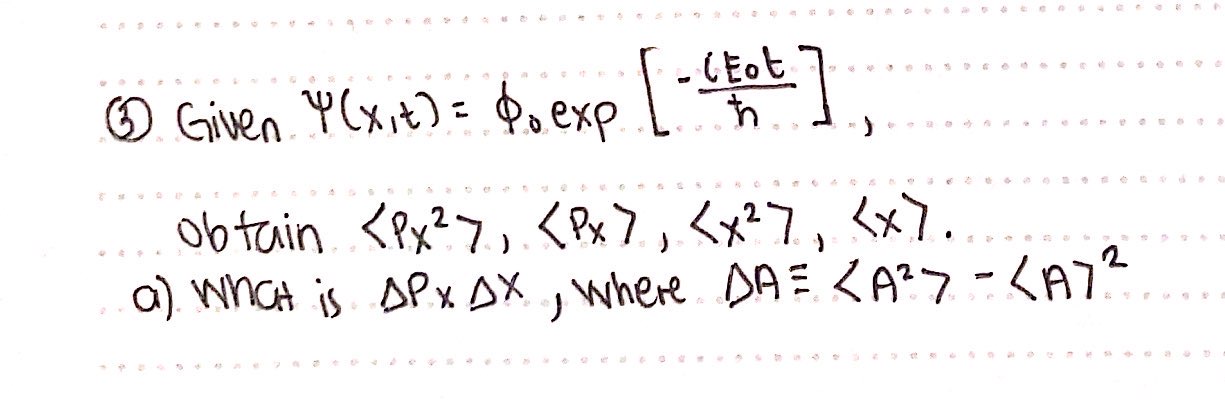 ③ Given Ψ(x,t) = ϕ₀ exp [-iE₀t/ħ],
obtain <Px²>, <Px>, <x²>, <x>.
a) What is ΔPxΔX, where ΔA ≡ <A²> - <A>²